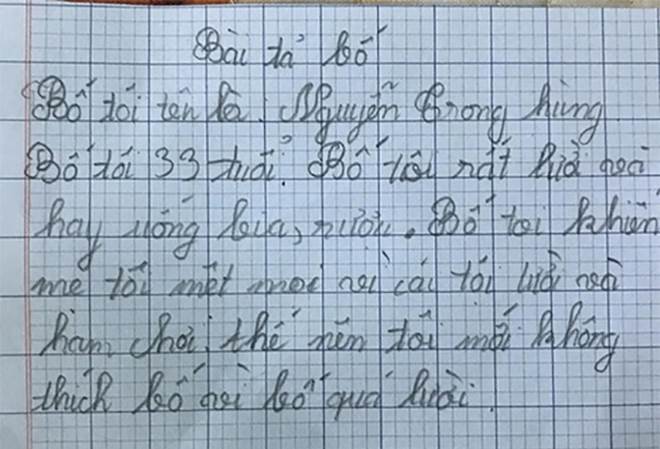 Bài tả bố
Bố tôi tên là Nguyễn Trong hùng
Bố tôi 33 tuổi. Bố tôi rất lười và
hay uống bia, rượu. Bố toi khiến
mẹ tôi mệt mọi vì cái tôi lười và
ham chơi thế nên tôi mới không
thích bố vì bố quá lười.